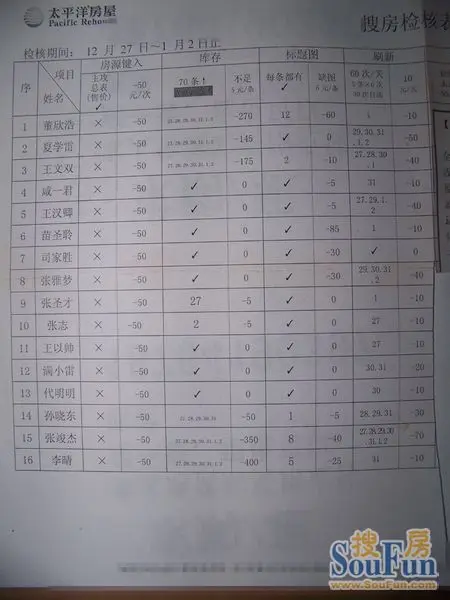 太平洋房屋
Pacific Reho
搜房检核表
检核期间: 12 月 27 日~1 月 2 日止
项目 房源键入 库存 标题图 刷新
序 姓名 主攻总表(售价) ✓ -50元/次 70条↑ 不足5元/条 每条都有 缺图5元/条 60次/天 10元/次
1 董欣浩 × -50 27.28.29.30.31.1.2 -270 12 -60 1 -10
2 夏学雷 × -50 27.28.29.30.31.1.2 -145 ✓ 0 29.30.31.1.2 -50
3 王文双 × -50 27.28.29.30.31.1.2 -175 2 -10 27.28.30.1 -40
4 咸一君 × -50 ✓ 0 ✓ -5 31 -10
5 王汉卿 × -50 ✓ 0 ✓ -5 27.29.1.2 -40
6 苗圣聆 × -50 ✓ 0 ✓ -85 1 -10
7 司家胜 × -50 ✓ 0 ✓ -30 ✓ 0
8 张雅梦 × -50 ✓ 0 ✓ -30 29.30.31.2 -40
9 张圣才 × -50 27 -5 ✓ 0 1 -10
10 张志 × -50 2 -5 ✓ 0 27 -10
11 王以帅 × -50 ✓ 0 ✓ 0 27 -10
12 满小雷 × -50 ✓ 0 ✓ 0 30.31 -20
13 代明明 × -50 ✓ 0 ✓ 0 30 -10
14 孙晓东 × -50 27.28.29.30.31 -50 1 -5 28.29.31 -30
15 张竣杰 × -50 27.28.29.30.31.1.2 -350 8 -40 27.28.29.30.31.1.2 -70
16 李晴 × -50 27.28.29.30.31.1.2 -400 5 -25 31 -10
搜房
SouFun
www.SouFun.com